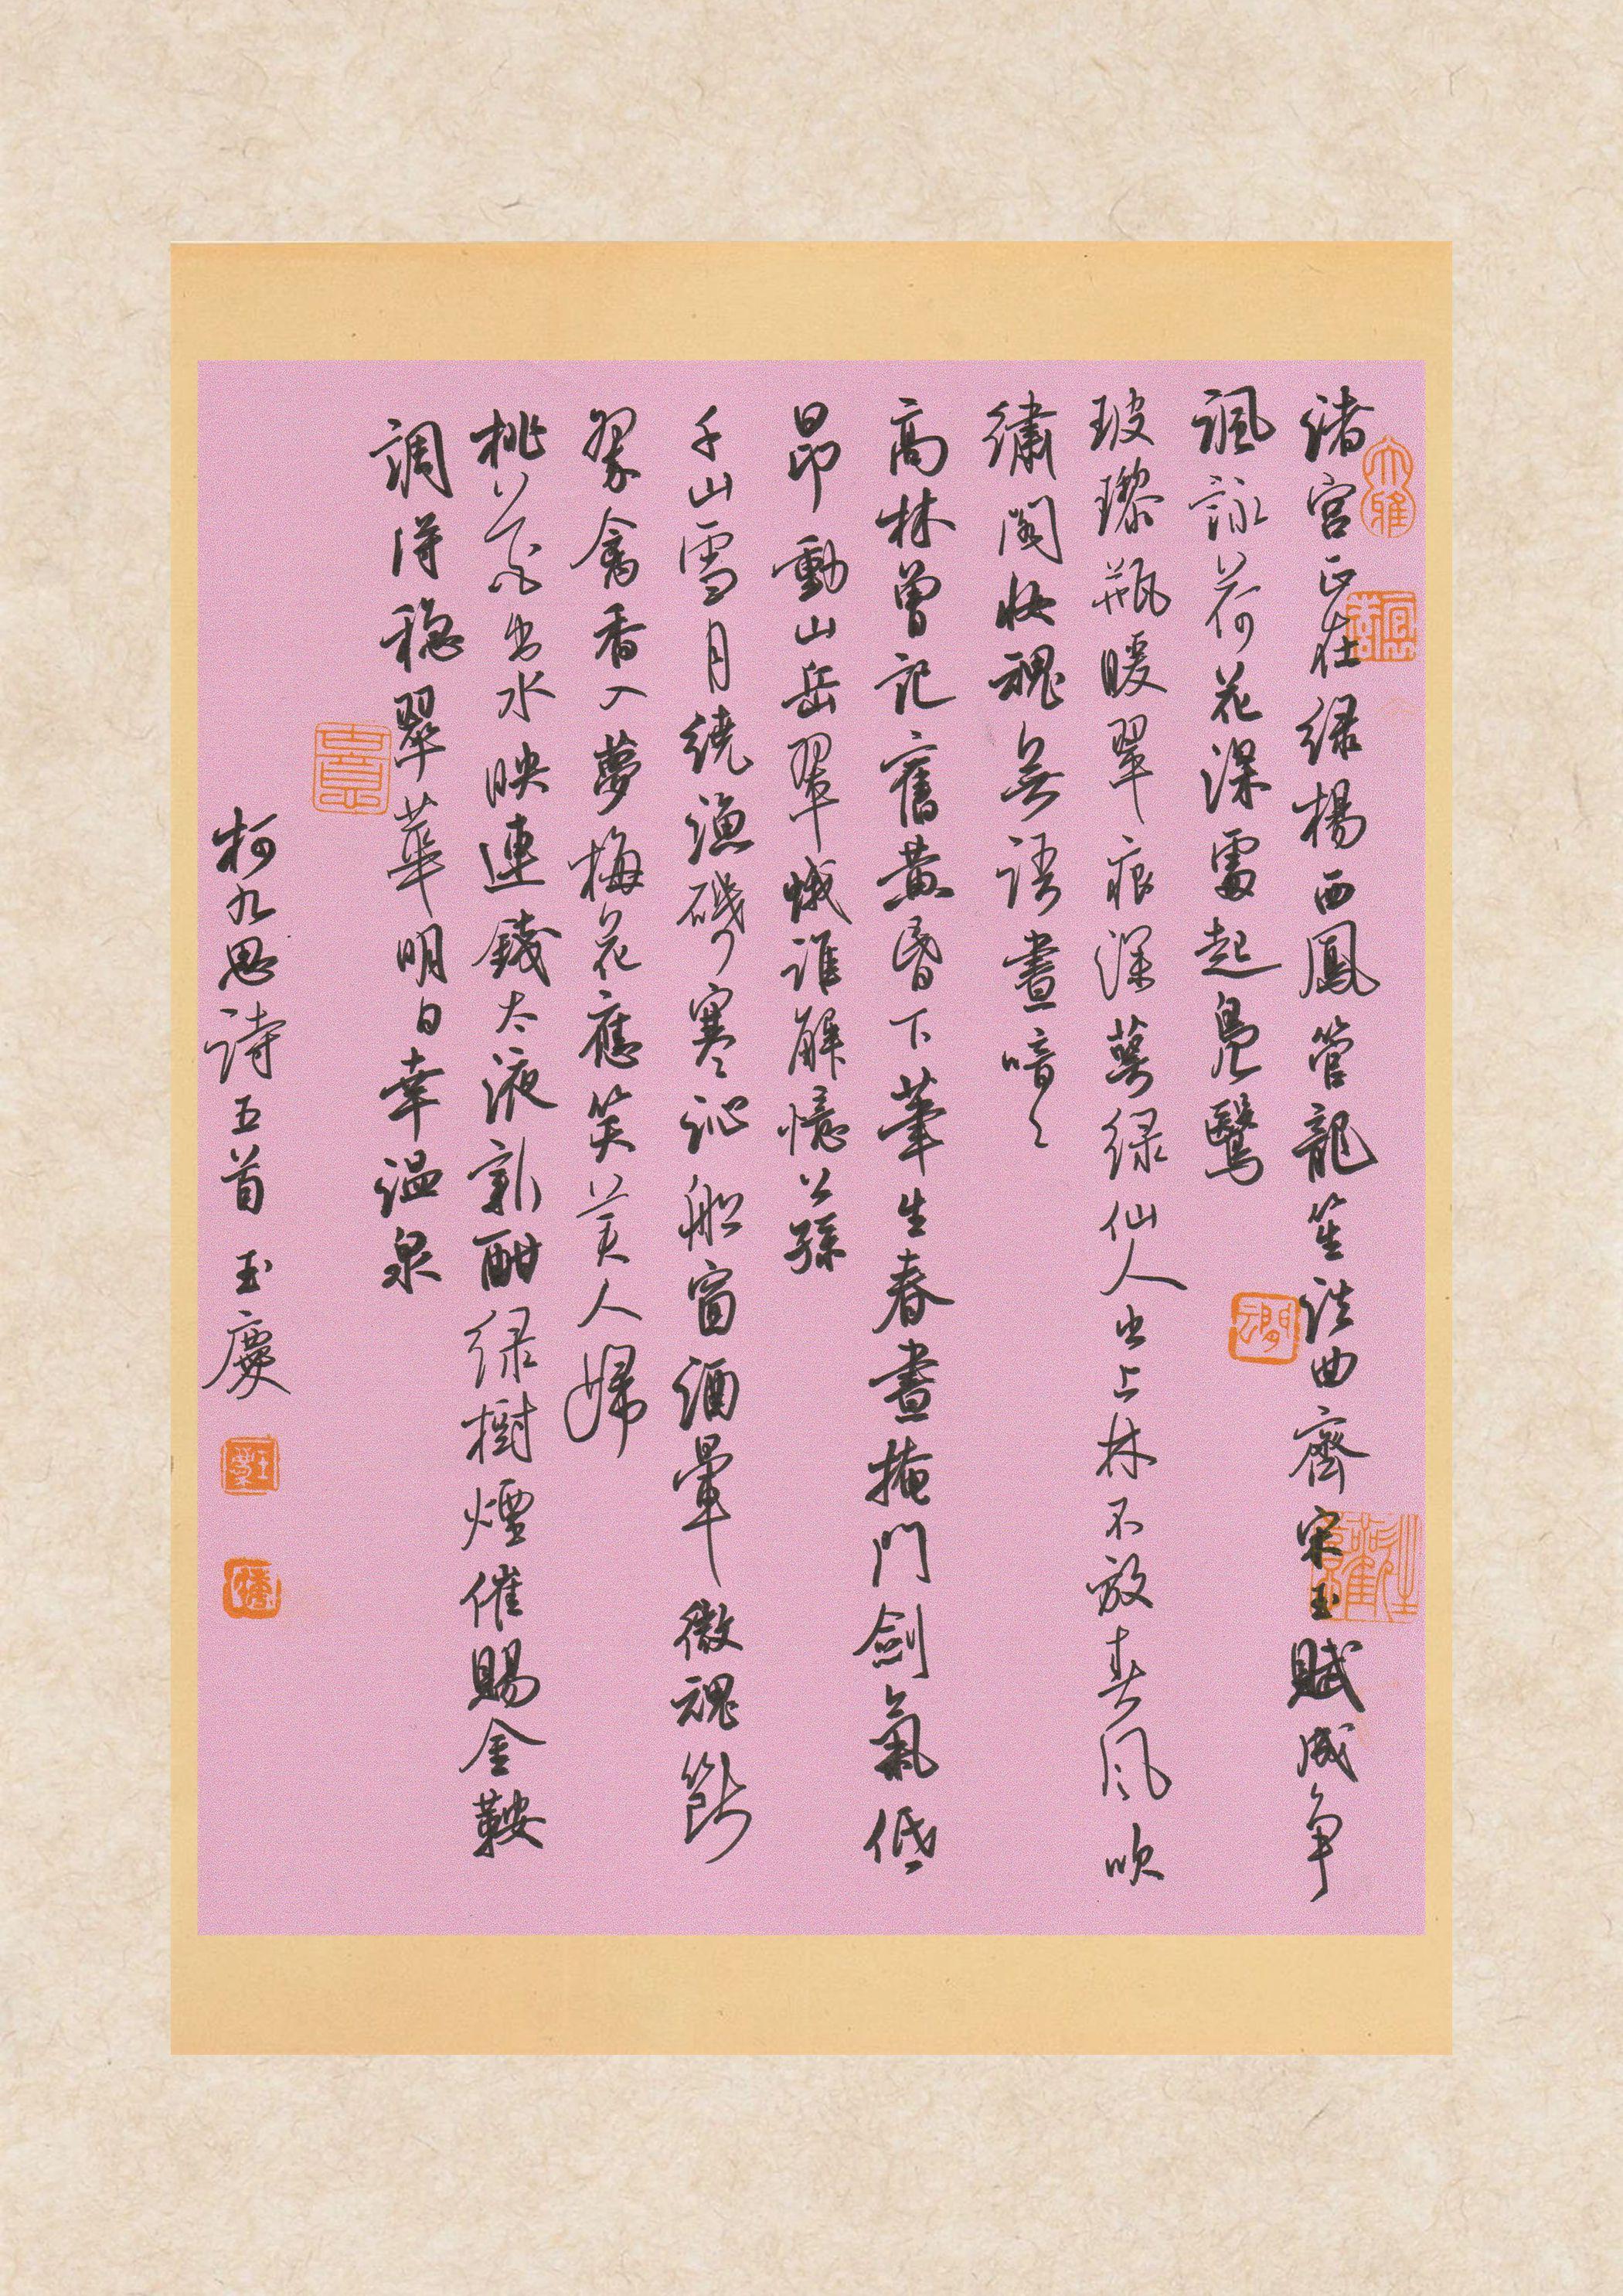 渚宮正在綠楊西鳳管龍笙法曲齊宋玉賦成爭
諷詠荷花深處起鳧鷖
玻瓈瓶暖翠痕深萼綠仙人出上林不放春風吹
繡閣妝魂無語晝喑喑
高林曾記舊黃昏下筆生春晝掩門劍氣低
昂動山岳翠蛾誰解憶公孫
千山雪月繞漁磯寒沁船窗酒暈微魂斷
翠禽香入夢梅花應笑美人歸
桃花出水映連錢太液新酣綠樹煙催賜金鞍
調得穩翠華明日幸溫泉
柯九思詩五首 玉慶
大雅